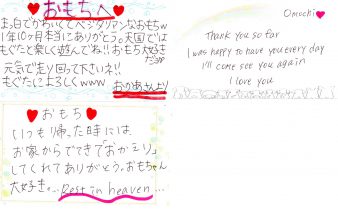 おもちへ
まっ白でかわいくてベジタリアンなおもちw
1年10ヶ月本当にありがとう。天国では
もぐたと楽しく遊んでね!!おもち大好き
だョ
元気で走り回って下さいネ!!
もぐたによろしくwww
おかあさんより
Omochi
Thank you so far
I was happy to have you every day
I'll come see you again
I love you
おもち
いつも帰った時には
お家からでてきて「おかえり」
してくれてありがとう。おもちゃん
大好き。...Rest in heaven...